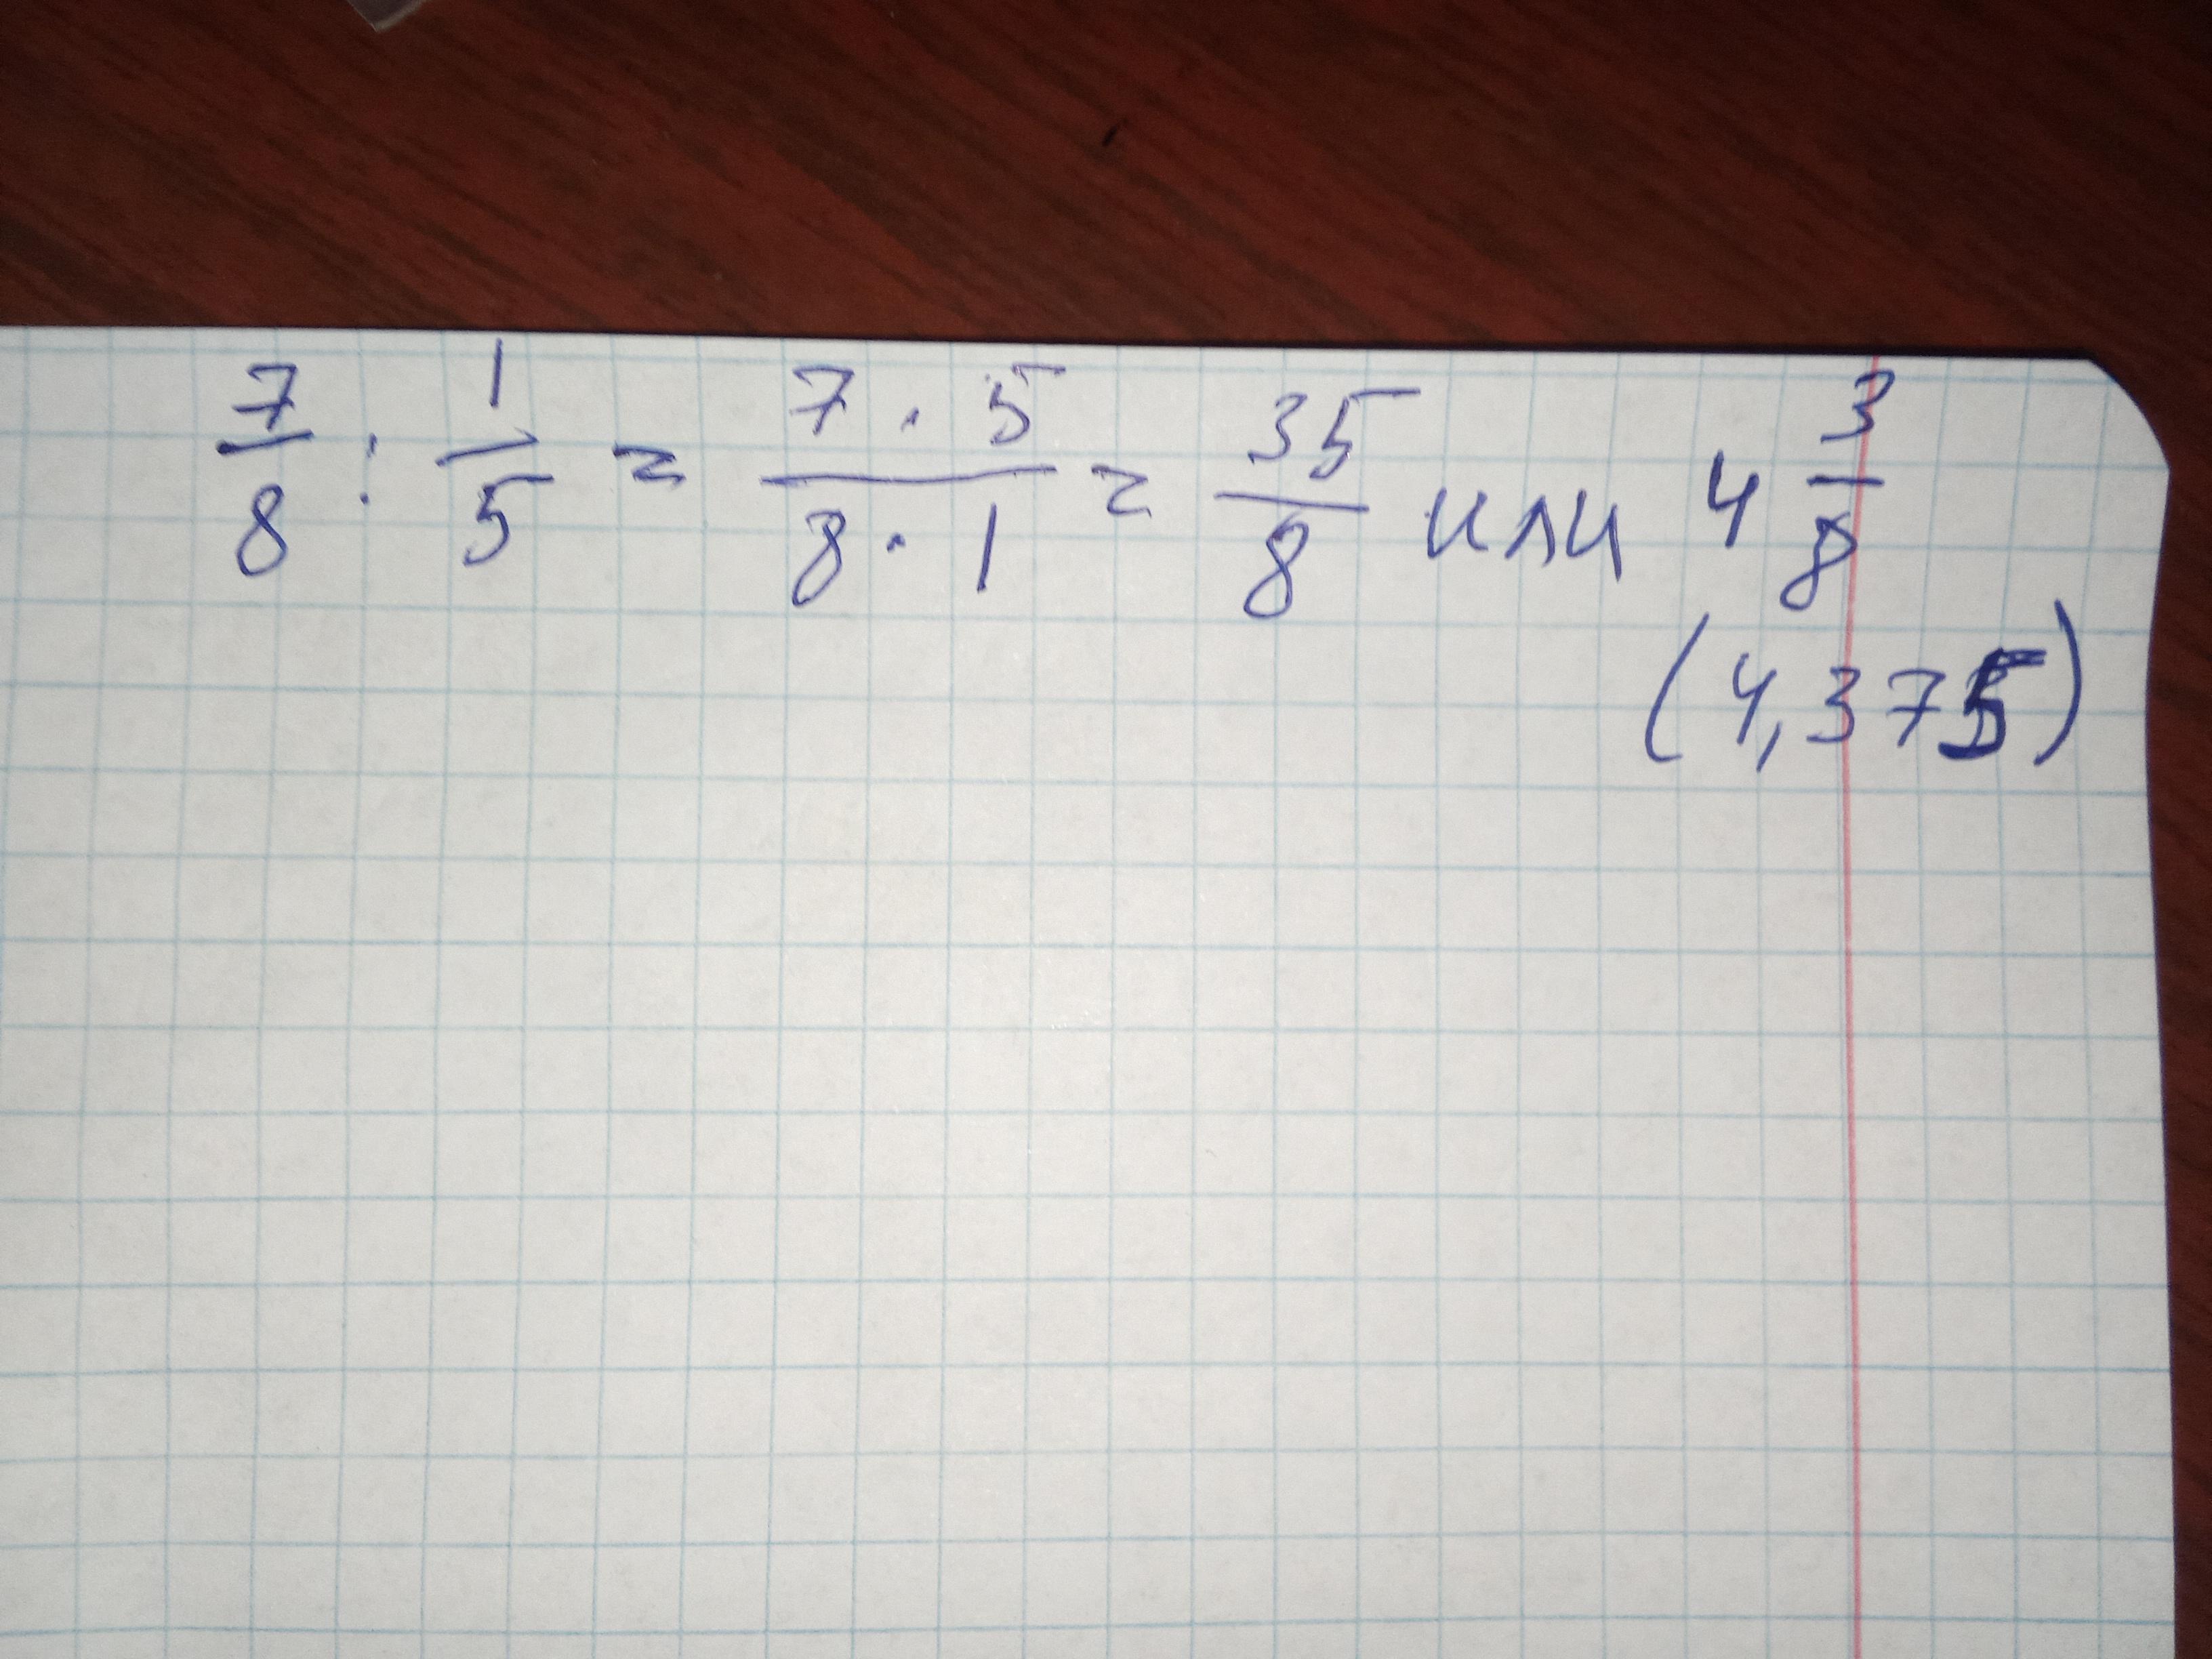 7/8 : 1/5 = 7 · 5 / 8 · 1 = 35/8 или 4 3/8
(4,375)